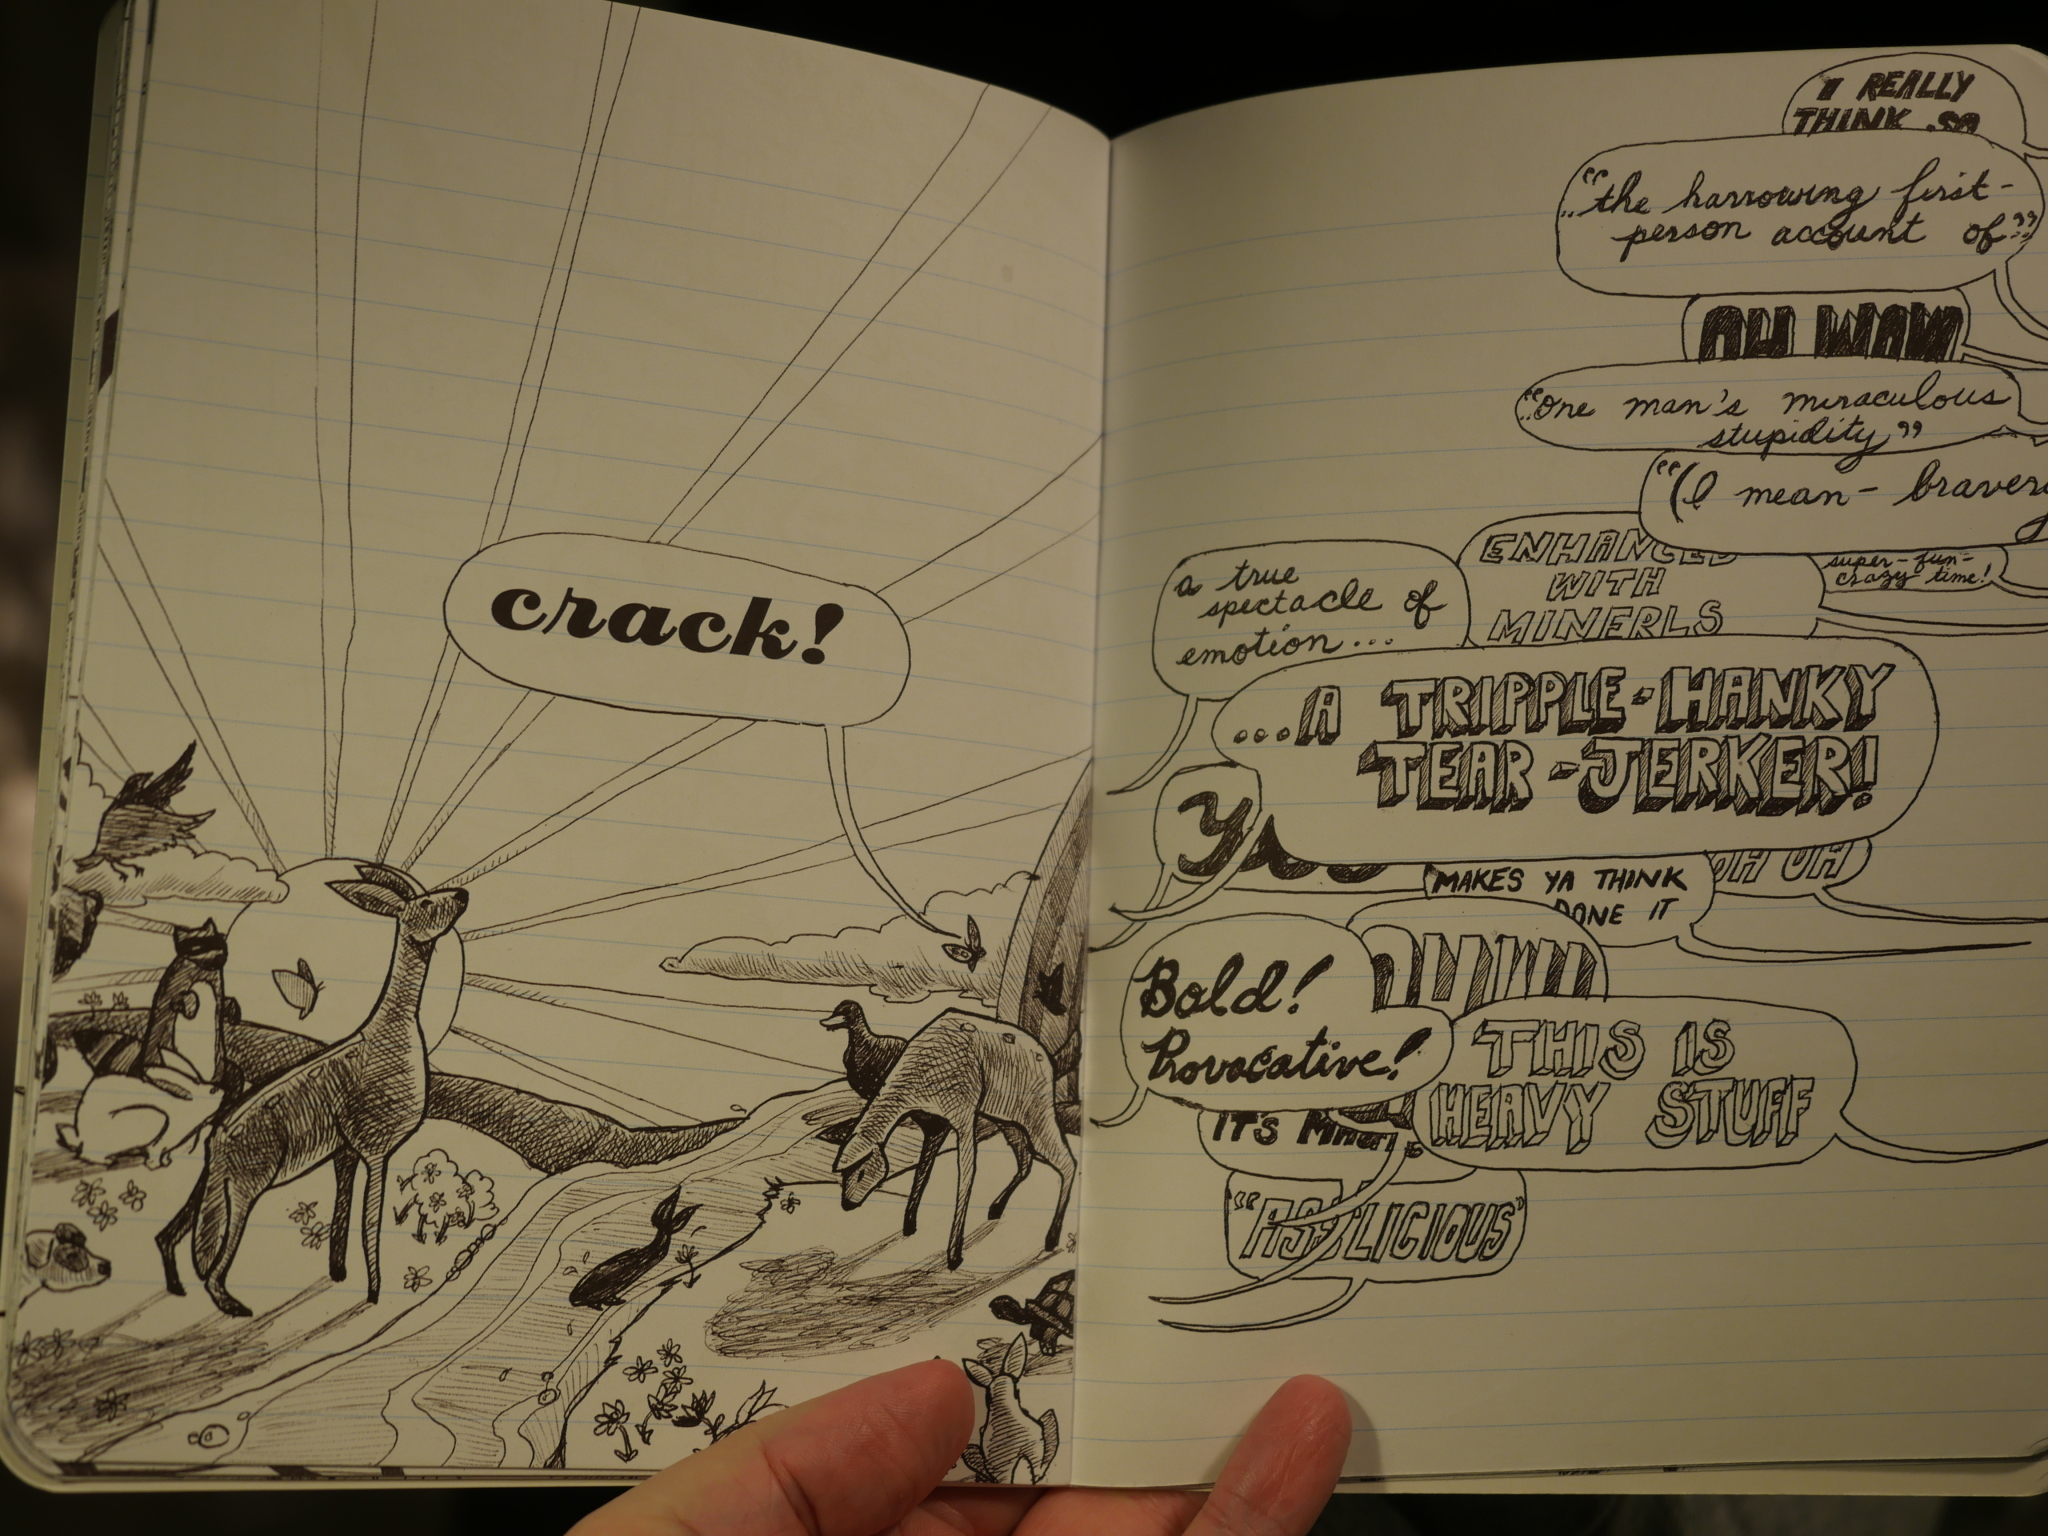 crack!
I REALLY
THINK SO
"the harrowing first-
person account of"
OH WOW
"one man's miraculous
stupidity"
"(I mean- bravery
ENHANCED
WITH
MINERLS
super-fun-
crazy time!
a true
spectacle of
emotion...
...A TRIPPLE-HANKY
TEAR-JERKER!
MAKES YA THINK
DONE IT
Bold!
Provocative!
THIS IS
HEAVY STUFF
IT'S